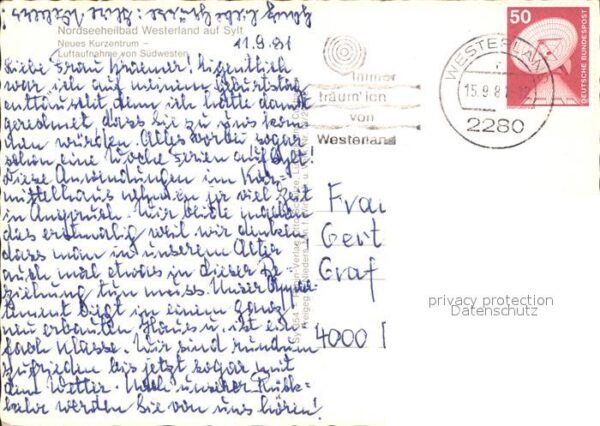 Nordseeheilbad Westerland auf Sylt
Neues Kurzentrum –
Luftaufnahme von Südwesten
11.9.81
Liebe Frau Krämer! Eigentlich
war ich auf meinem Geburtstag
enttäuscht denn ich hatte damit
gerechnet dass Sie zu uns kom-
men würden. Alles vorbei sogar
schon eine Woche Ferien auf Sylt!
Diese Anwendungen im Kur-
mittelhaus nehmen ja viel Zeit
in Anspruch. Wir beide machen
das erstmalig weil wir denken
dass man in unserem Alter
auch mal etwas in dieser Be-
ziehung tun muss. Unser Appar-
tement liegt in einem ganz
neu erbauten Haus u. ist ein-
fach Klasse. Wir sind rundum
zufrieden bis jetzt sogar mit
dem Wetter. Nach unserer Rück-
kehr werden Sie von uns hören!
Herzl. liebe Grüsse: Ihre
immer
träum' ich
von
Westerland
WESTERLAND
15.9.8
2280
50
DEUTSCHE BUNDESPOST
Frau
Gert
Graf
4000
privacy protection
Datenschutz